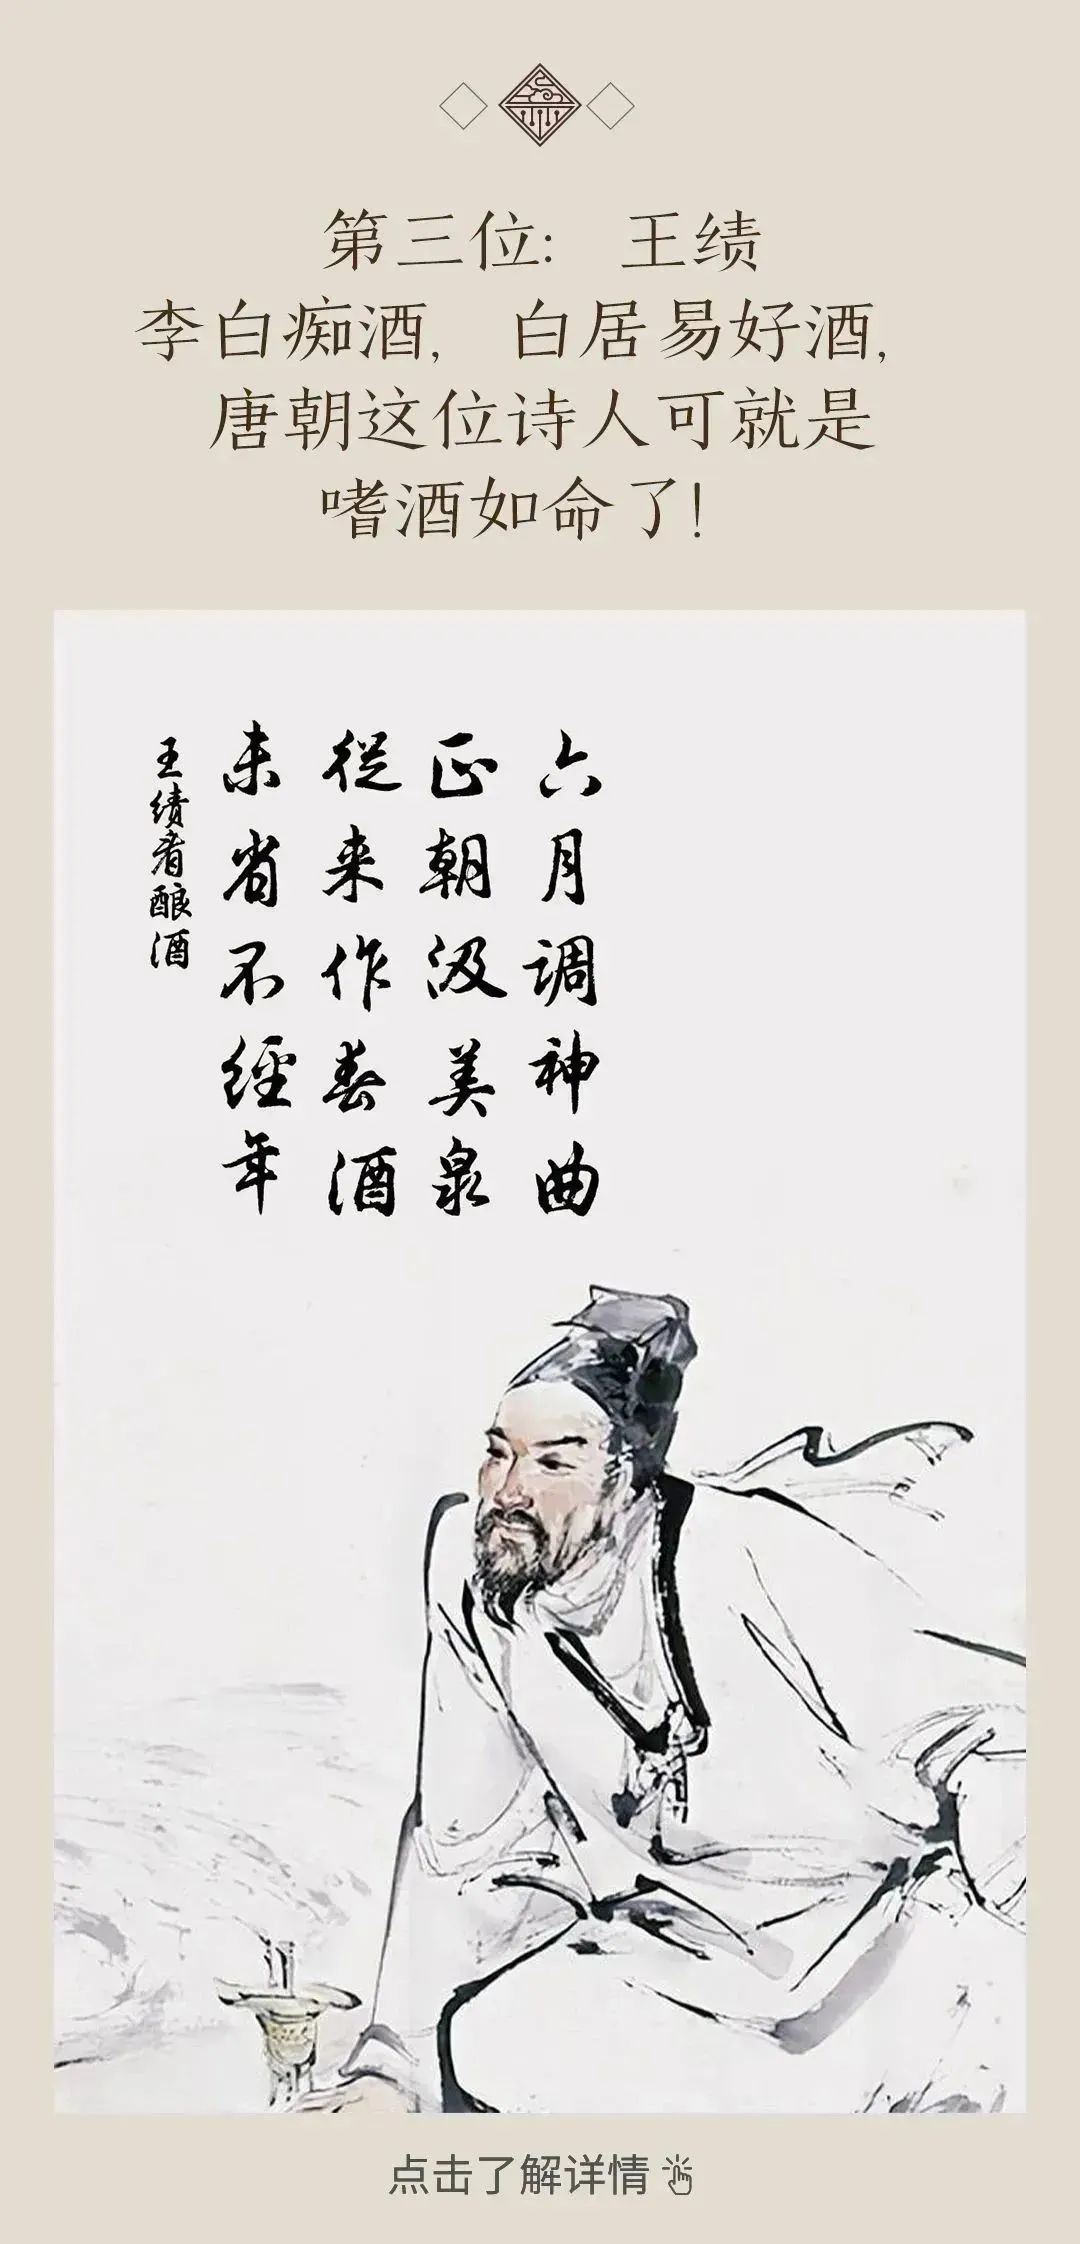 第三位：王绩
李白痴酒，白居易好酒，
唐朝这位诗人可就是
嗜酒如命了！
六月调神曲
正朝汲美泉
從来作春酒
未省不經年
王绩看酿酒
点击了解详情